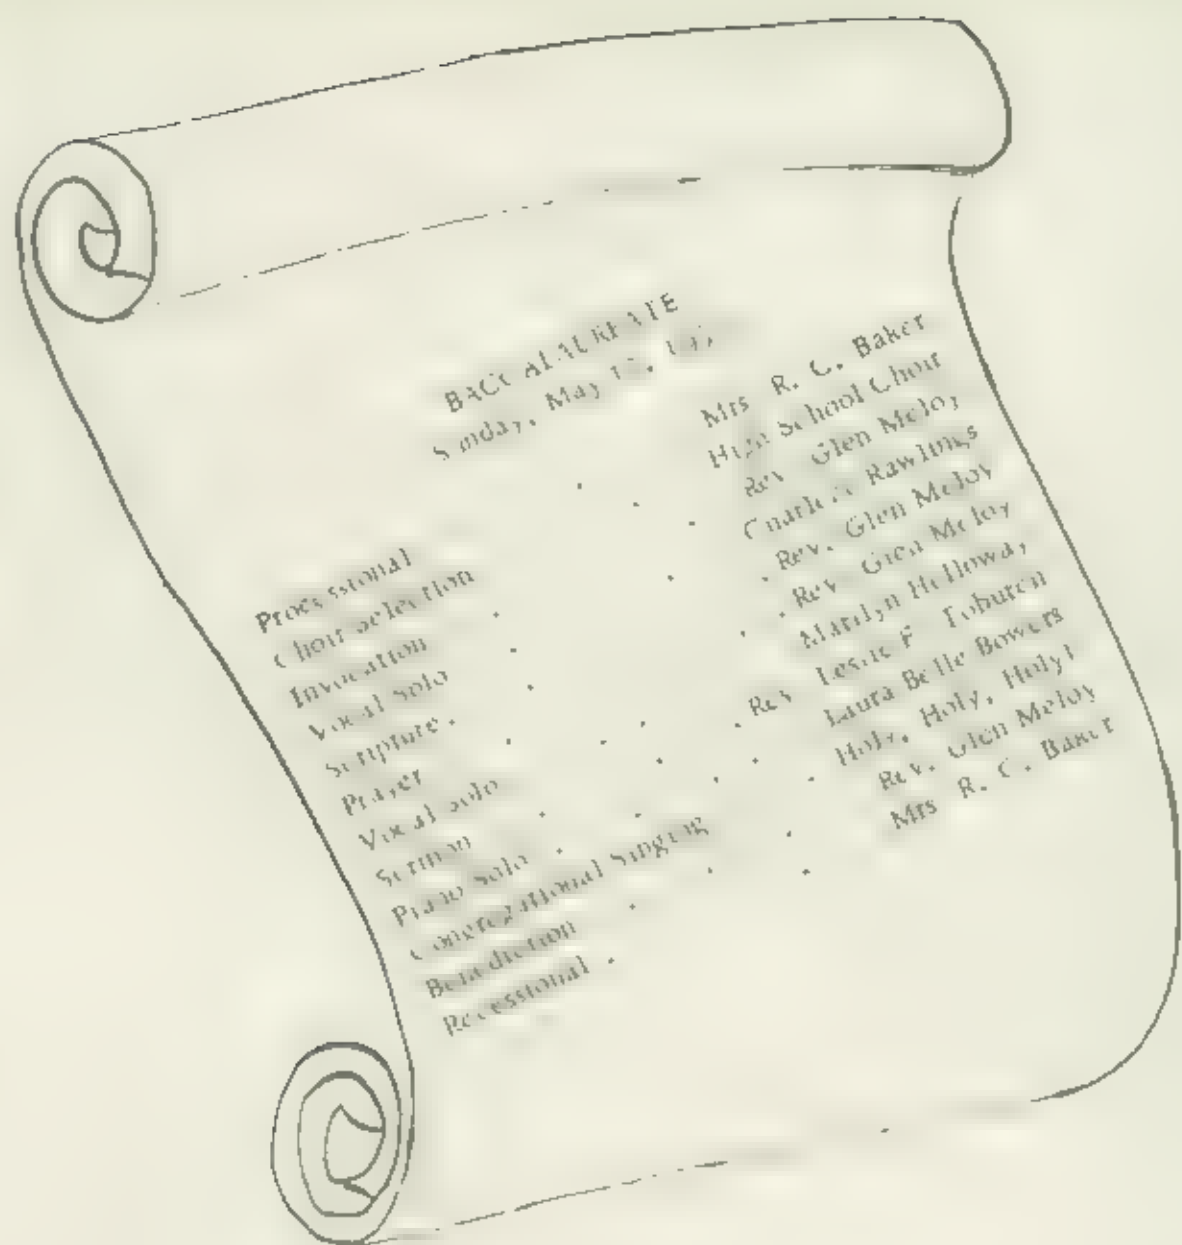 BACCALAUREATE
Sunday, May
Processional . . . Mrs. R. C. Baker
Choir Selection . . High School Choir
Invocation . . . Rev. Glen Meloy
Vocal Solo . . . Rawlings
Scripture . . . Rev. Glen Meloy
Prayer . . . Rev. Glen Meloy
Vocal Solo . . . Marilyn Holloway
Sermon . . . Rev. Leslie F. Toburen
Piano Solo . . . Laura Belle Bowers
Congregational Singing . . Holy, Holy, Holy!
Benediction . . . Rev. Glen Meloy
Recessional . . . Mrs. R. C. Baker